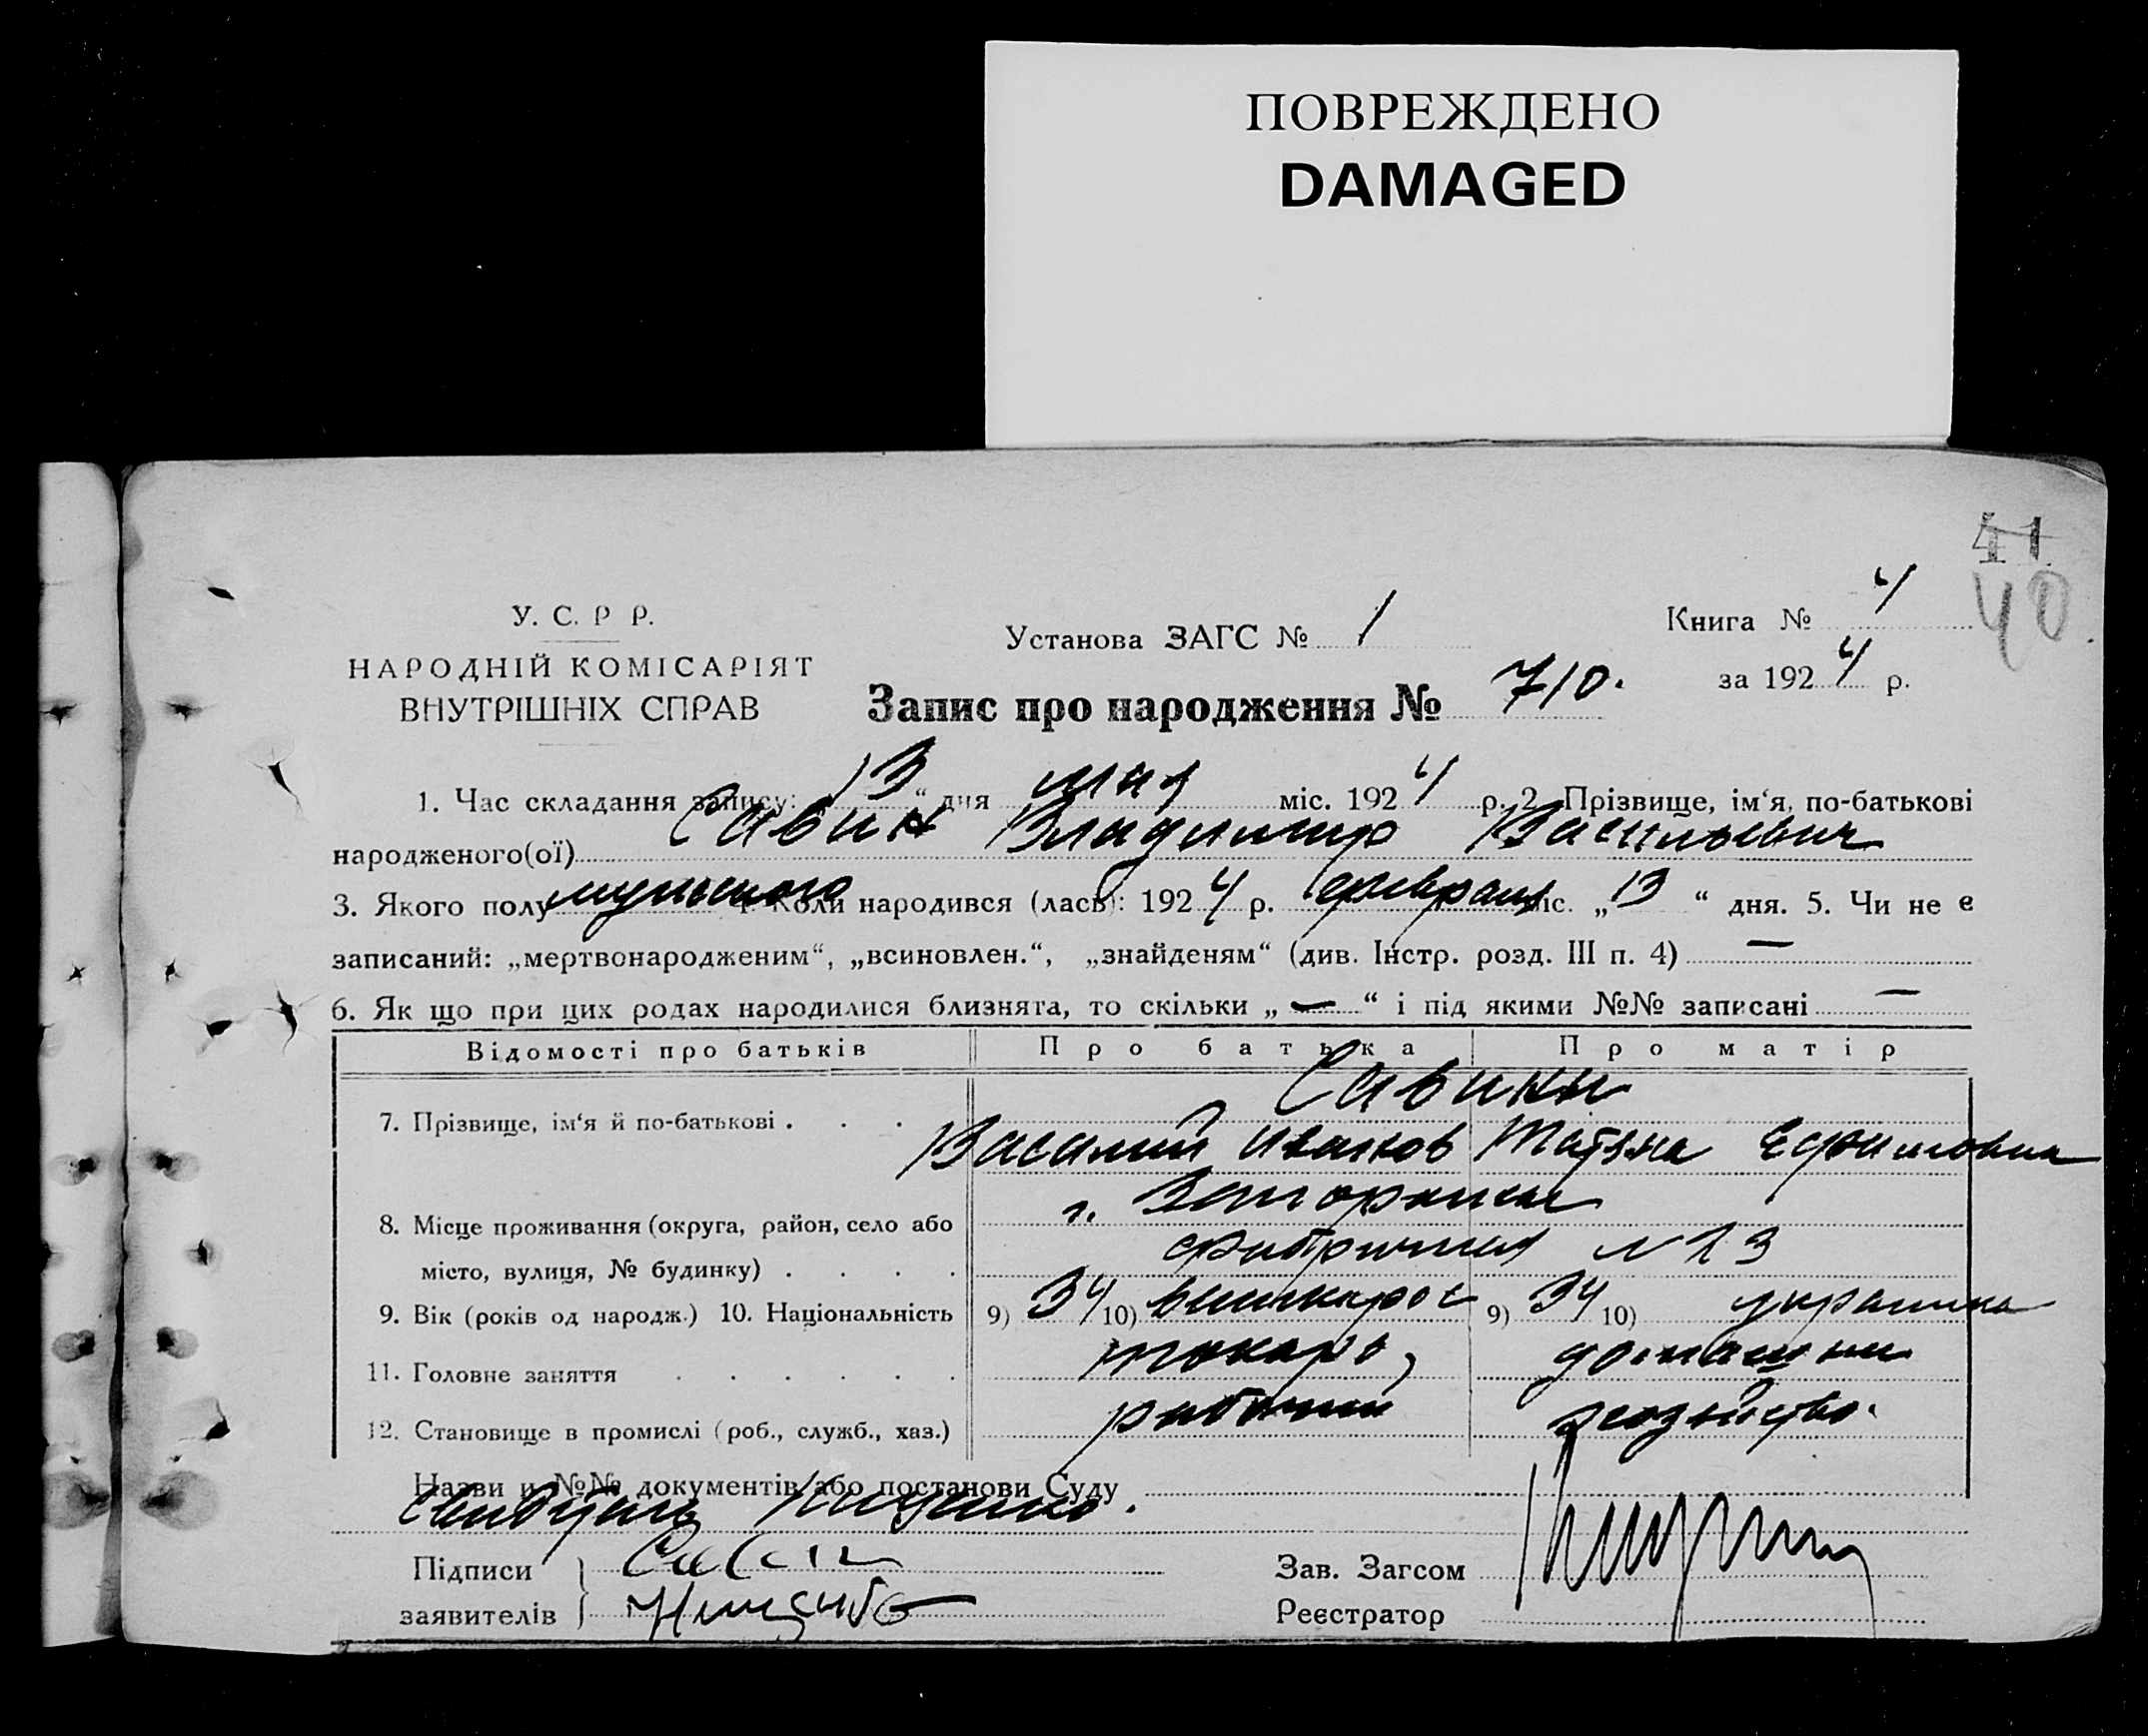 ПОВРЕЖДЕНО
DAMAGED
41
40
У. С. Р Р.
НАРОДНІЙ КОМІСАРІЯТ
ВНУТРІШНІХ СПРАВ
Установа ЗАГС № 1
Книга № 4
за 1924 р.
Запис про народження № 710.
1. Час складання запису: 13 “ дня мая міс. 1924 р. 2. Прізвище, ім‘я, по-батькові
народженого(ої) Савин Владимир Васильевич
3. Якого полу мужского 4. Коли народився (лась): 1924 р. февраля міс. „13“ дня. 5. Чи не є
записаний: „мертвонародженим“, „всиновлен.“, „знайденям“ (див. Інстр. розд. III п. 4) —
6. Як що при цих родах народилися близнята, то скільки „—“ і під якими №№ записані —
Відомості про батьків Про батька Про матір
Савины
7. Прізвище, ім‘я й по-батькові . . .
Василий Иванов Татьяна Ефимовна
г. Запорожье
8. Місце проживання (округа, район, село або
місто, вулиця, № будинку) . . . .
9. Вік (років од народж.) 10. Національність 9) 34 10) великорос 9) 34 10) украинка
11. Головне заняття . . . . . . токарь, домашнее
12. Становище в промислі (роб., служб., хаз.) рабочий хозяйство.
Назви и №№ документів або постанови Суду
Підписи
заявителів
Савин
Зав. Загсом
Реєстратор